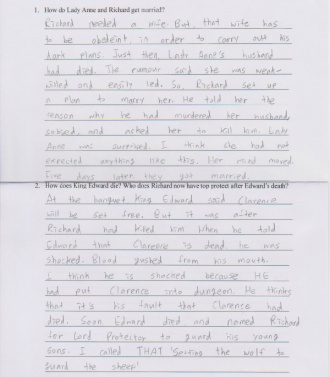 1. How do Lady Anne and Richard get married?
Richard needed a wife But, that wife has
to be obedeint, in order to carry out his
dark plans. Just then, Lady Anne's husband
had died. The rumour said she was weak-
willed and easily led. So, Richard set up
a plan to marry her. He told her the
reason why he had murdered her husband,
sobbed, and asked her to kill him. Lady
Anne was surprised. I think she had not
expected anything like this. Her mind moved.
Five days later, they got married.
2. How does King Edward die? Who does Richard now have top protect after Edward's death?
At the banquet King Edward said Clarence
will be set free. But it was after
Richard had killed him When he told
Edward that Clarence is dead, he was
shocked. Blood gushed from his mouth.
I think he is shocked because HE
had put Clarence into dungeon. He thinks
that it's his fault that Clarense had
died. Soon Edward died and named Richard
for Lord Protector to guard his young
sons. I called THAT 'Setting the wolf to
guard the sheep'